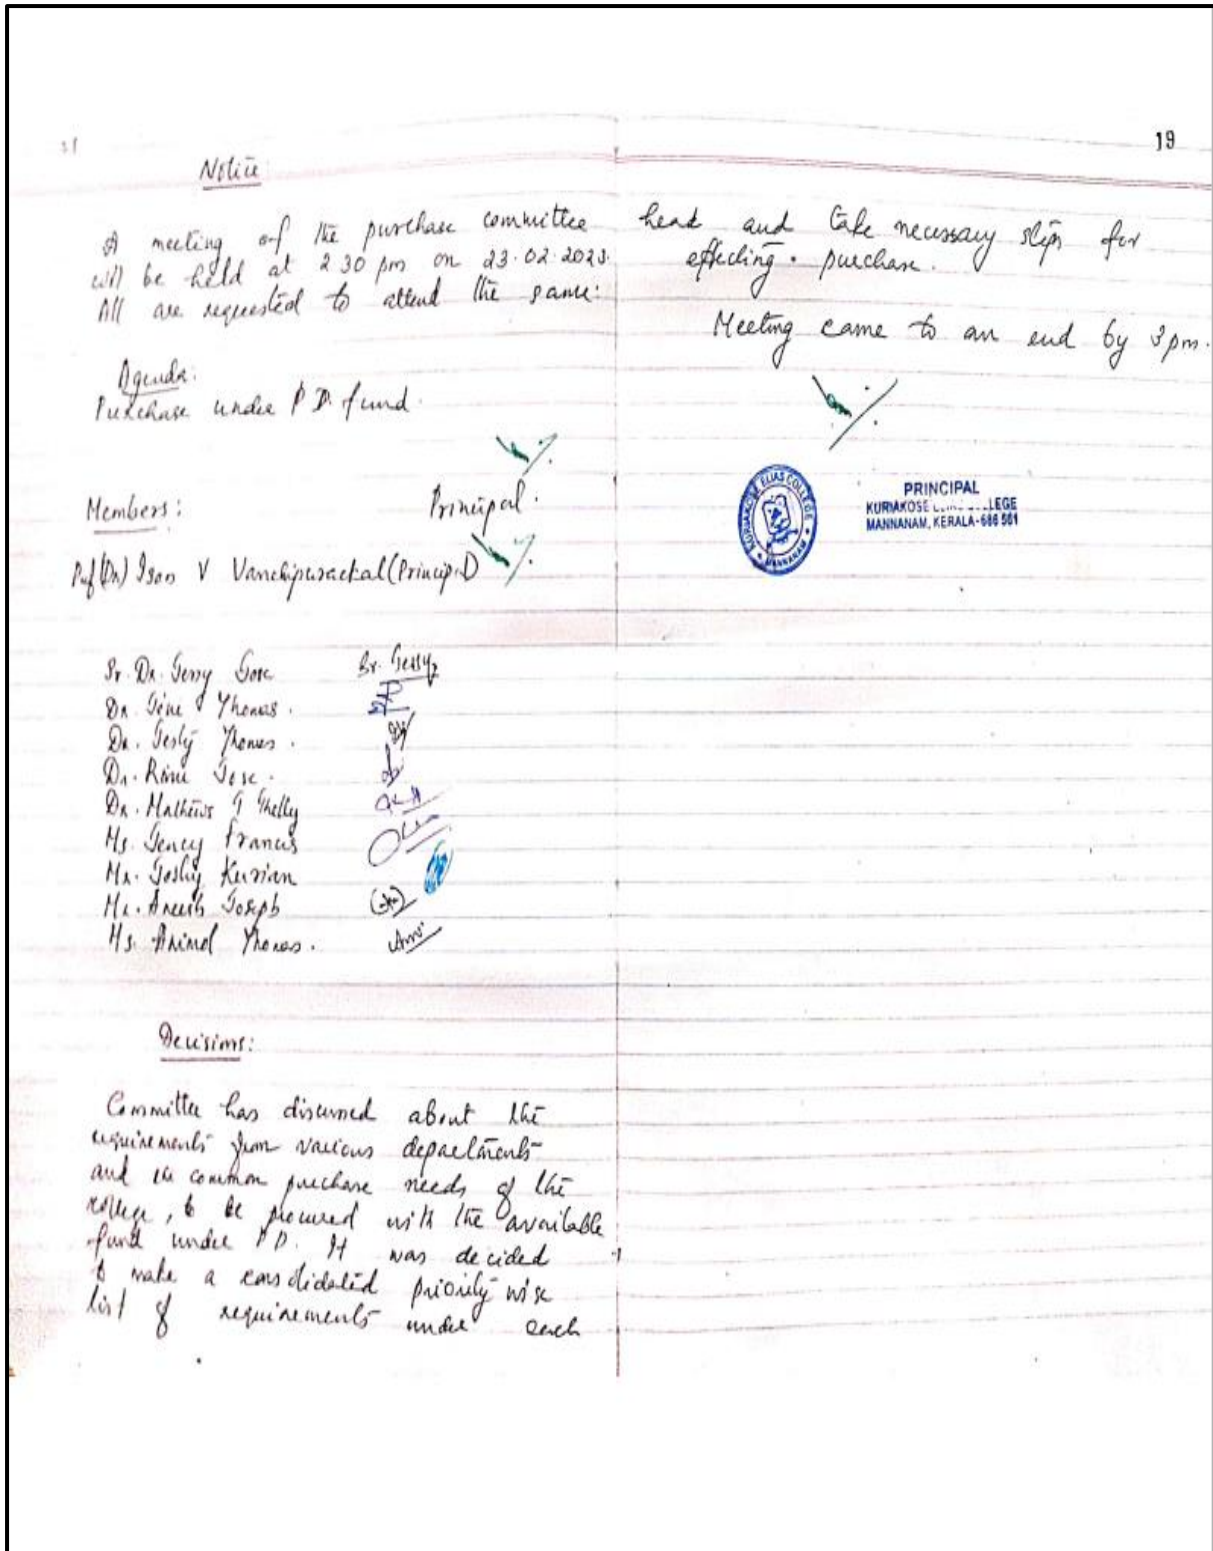 Notice
A meeting of the purchase committee
will be held at 2 30 pm on 23.02.2023.
All are requested to attend the same.
Agenda:
Purchase under P.D. fund.
Principal.
Members:
Prof (Dr) Ison V Vanchipurackal (Principal)
Sr. Dr. Jessy Jose Sr. Jessy
Dr. Thomas.
Dr. Jesty Thomas.
Dr. Rani Jose.
Dr. Mathews T Thelly
Ms. Jency Francis
Mr. Joshy Kurian
Mr. Aneesh Joseph
Ms. Animol Thomas.
Decisions:
Committee has discussed about the
requirements from various departments
and common purchase needs of the
college, to be procured with the available
fund under PD. It was decided
to make a consolidated priority wise
list of requirements under each
19
head and take necessary steps for
effecting purchase.
Meeting came to an end by 3 pm.
KURIAKOSE ELIAS COLLEGE
MANNANAM
PRINCIPAL
KURIAKOSE LLEGE
MANNANAM, KERALA-686 561